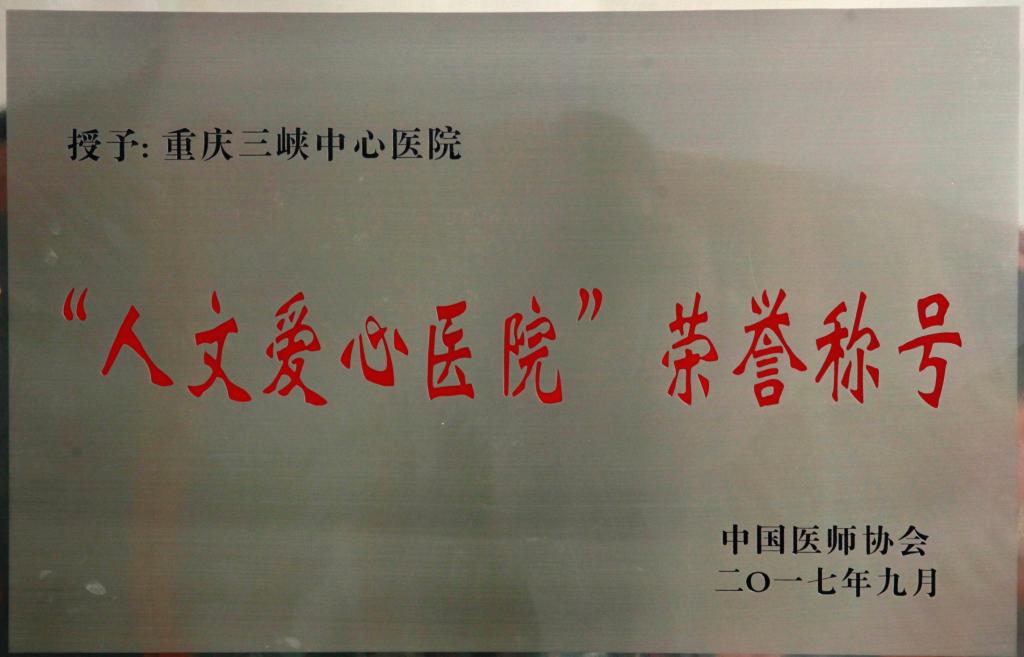 授予: 重庆三峡中心医院
“人文爱心医院”荣誉称号
中国医师协会
二〇一七年九月